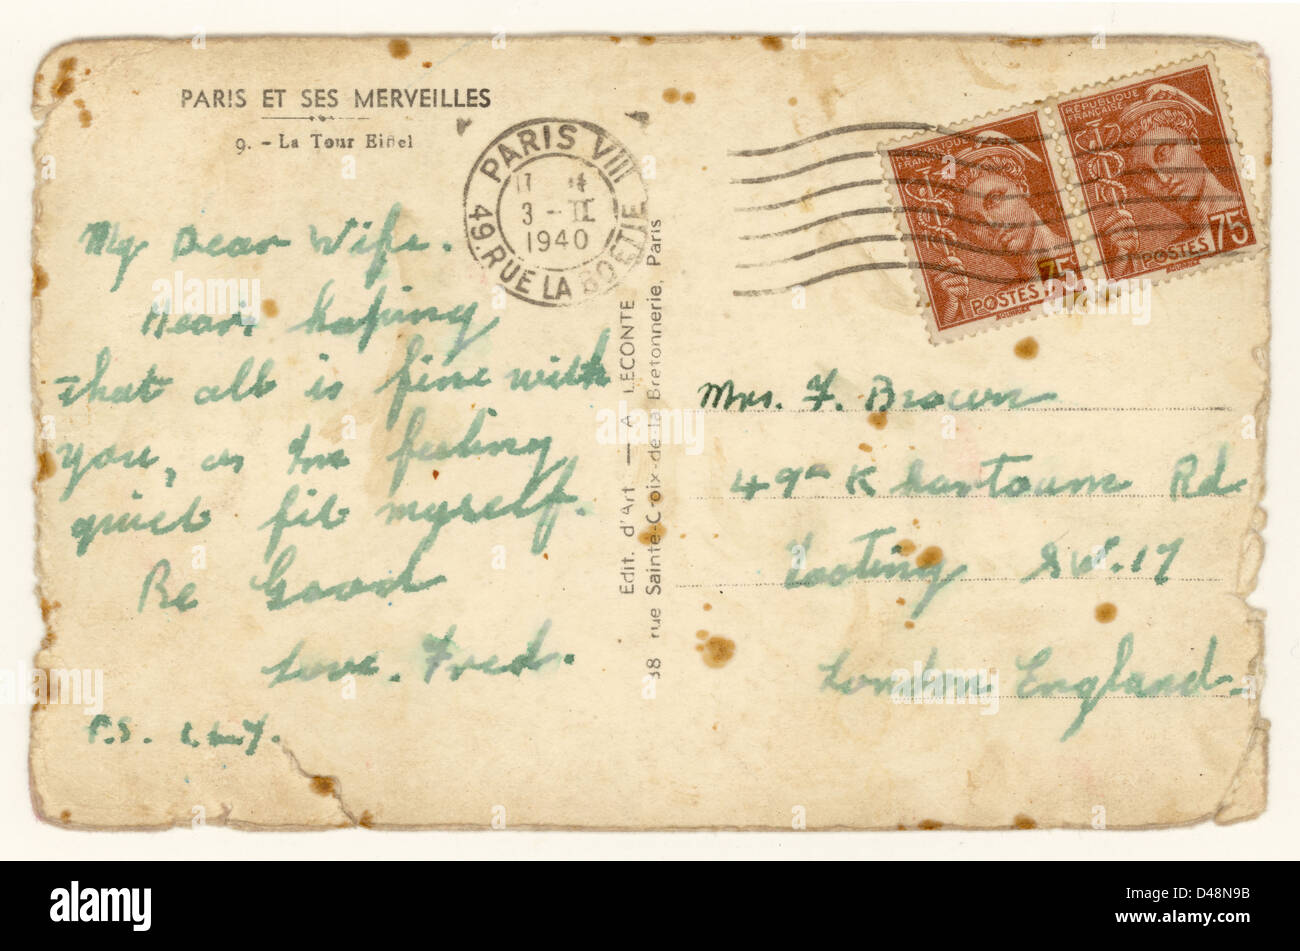 PARIS ET SES MERVEILLES
9. - La Tour Eiffel
PARIS VIII
49. RUE LA BOÉTIE
3 - II
1940
RÉPUBLIQUE
FRANÇAISE
75
POSTES
RÉPUBLIQUE
FRANÇAISE
75
POSTES
My Dear Wife.
Dear, hoping
that all is fine with
you, as Im feeling
quiet fit myself.
Be Good
Love. Fred.
P.S. I.L.Y.
Edit. d'Art — A LECONTE
38 rue Sainte-Croix-de-la Bretonnerie, Paris
Mrs. F. Brown
49a Khartoum Rd
Tooting S.W.17
London England.
alamy
alamy
Image ID: D48N9B
www.alamy.com